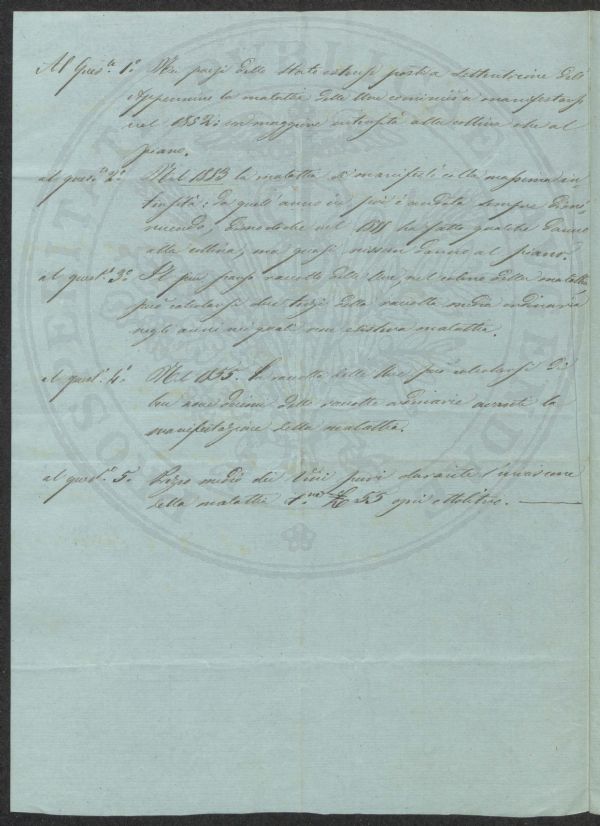 Al ques.to 1.o Nei paesi dello Stato estense posti a settentrione dell'
Appennino la malattia delle Uve cominciò a manifestarsi
nel 1852: in maggiore intensità alla collina che al
piano.
al ques.to 2.o Nel 1853 la malattia si manifestò colla massima in-
tensità: da quell'anno in poi è andata sempre dimi-
nuendo, dimodochè nel ha fatto qualche danno
alla collina, ma quasi nissun danno al piano.
al ques.to 3.o Il più scarso raccolto delle Uve, nel colmo della malattia
può calcolarsi due terzi della raccolta media ordinaria
negli anni nei quali non esisteva malattia.
al ques.to 4.o Nel 1855. la raccolta delle Uve può calcolarsi di
tre delle raccolte ordinarie avanti la
manifestazione della malattia.
al ques.to 5.o Prezzo medio dei Vini puri durante l'invasione
della malattia 55 ogni ettolitro.